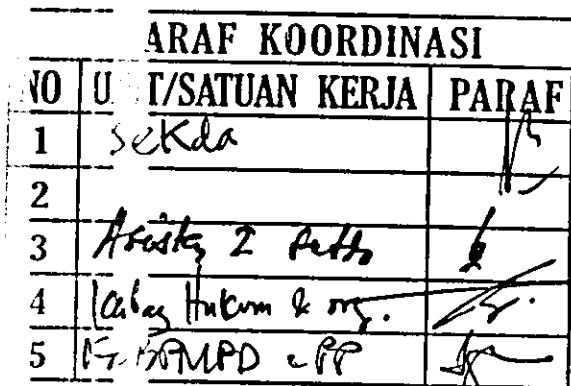 ARAF KOORDINASI
NO U T/SATUAN KERJA PARAF
1 Sekda
2
3 Asisten I
4 Kabag Hukum & org.
5 BPMPD PP